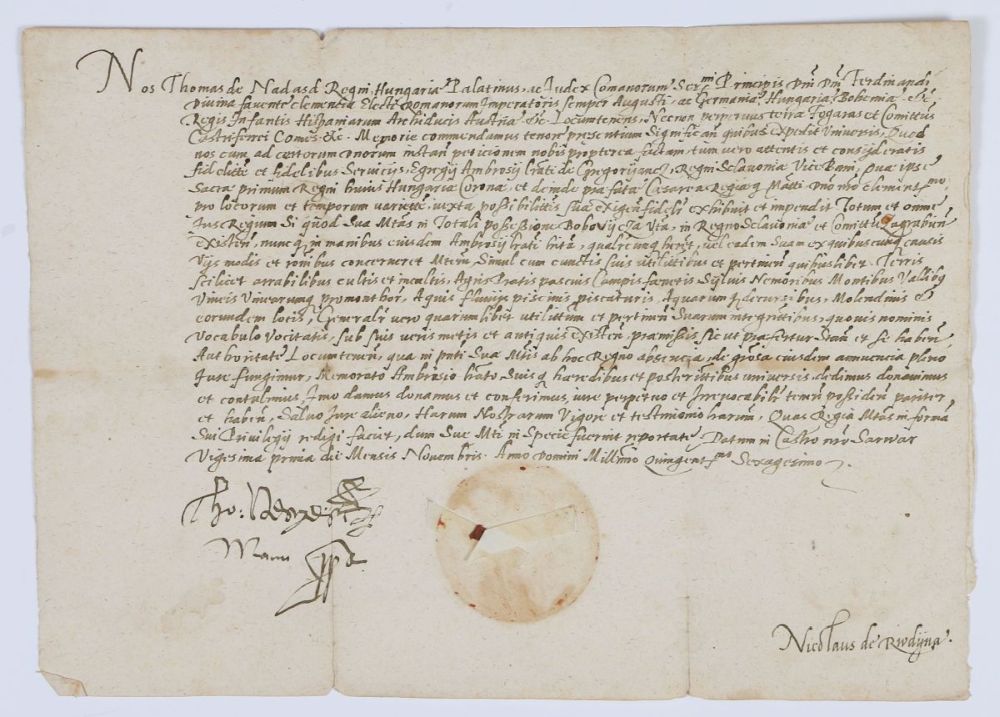 Nos Thomas de Nadasd Regni Hungariæ Palatinus, ac Judex Comanorum Ser.mi Principis Dni Dni Ferdinandi
Divina favente clementia Electi Romanorum Imperatoris semper Augusti, ac Germaniæ, Hungariæ, Bohemiæ &c
Regis Infantis Hispaniarum Archiducis Austriæ &c Locumtenens, Necnon perpetuus terræ Fogaras et Comittus
Castriferrei Comes &c. Memorie commendamus tenore presentium Significan quibus expedit Universis, Quod
nos cum ad instan peticionem nobis propterea factam, tum vero attentis et consyderatis
fidelitte et fidelibus Servicijs, Egregij Ambrosij Grati de Gregorijancz, Regni Sclavoniæ Vice Bani, Quæ ipse
Sacræ primum Regni huius Hungariæ Coronæ, et deinde præfatæ Cesareæ Regiæq Matti Dno nro Clementmo,
pro locorum et temporum variette, iuxta possibilittis suæ exigen fideli exhibuit et impendit Totum et omne
Jus Regium Si quod Sua Mtas in Totali possessione Bobovijcza Vta, in Regno Sclavoniæ et Comittu Zagrabien
existen, nuncq in manibus eiusdem Ambrosij Grati hita, qualitercunq heret, vel eadem Suam ex quibuscunq causis
Vijs modis et ronibus concerneret Mtem, Simul cum cunctis suis utilittibus et pertinen quibuslibet. Terris
scilicet arabilibus cultis et incultis, Agris Pratis pascuis Campis fœnetis Sylvis Nemoribus Montibus Vallibq
Vineis Vinearumq promonthor, Aquis fluvijs piscinis piscaturis, Aquarumq decursibus, Molendinis &
eorundem locis, Generali vero quarumlibet utilittum et pertinen Suarum intergrittibus, quovis nominis
Vocabulo Vocitatis, Sub suis veris metis et antiquis existen, præmissis, sic ut præfertur Stan et se haben
Authoritate Locumtenen, qua in pnti Suæ Mtis ab hoc Regno absencia, de grosa eiusdem annuencia pleno
Jure fungimur, Memorato Ambrosio Grato Suisq hæredibus et posterittibus universis dedimus donavimus
et contulimus, Imo damus donamus et conferimus, iure perpetuo et irrevocabili tenen possiden pariter
et haben, Salvo Jure alieno, Harum Nostrarum Vigore et testimonio harum, Quas Regia Mtas in formā
Sui Privilegij redigi faciet, dum Suæ Mti in Specie fuerint reportate. Datum in Castro nro Sarwar
Vigesima prima die Mensis Novembris. Anno Domini Millmo Quingentmo Sexagesimo.
Tho: Nadasd
Manu ppa
Nicolaus de Rwdijna.